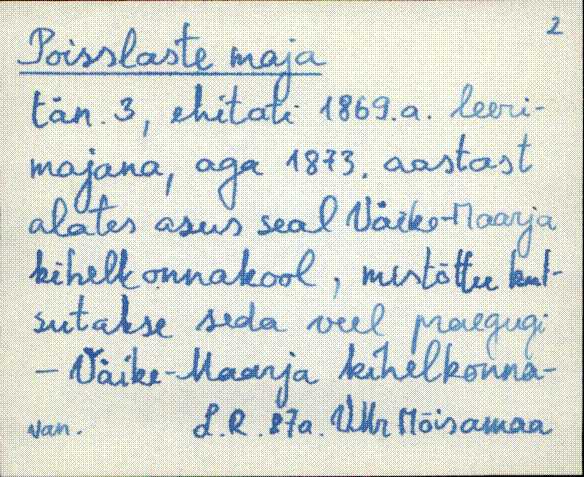 2
Poisslaste maja
tän. 3, ehitati 1869.a. leeri-
majana, aga 1873. aastast
alates asus seal Väike-Maarja
kihelkonnakool, mistõttu kut-
sutakse seda veel praegugi
– Väike-Maarja kihelkonna-
van. L.R. 87a. VMr Mõisamaa